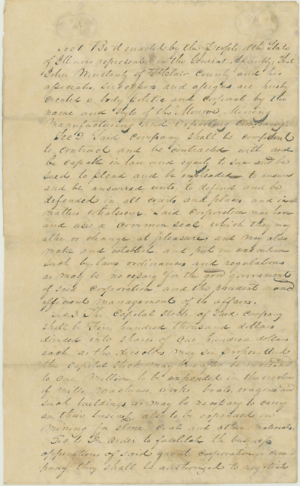 Sec 1 Be it enacted by the People of the State of
Illinois represented in the General Assembly, That
John Murdenty of St Clair County and his
associates successors and assigns are hereby
created a body politic and corporate by the
name and style of the
Manufacturing
Sec 2 Said Company shall be competent
to contract and be contracted with and
be capable in law and equity to sue and be
sued to plead and be impleaded to answer
and be answered unto to defend and be
defended in all courts and places and in
matters whatsoever. Said Corporation may have
and use a Common seal which they may
alter or change at pleasure and may also
make and establish and put in execution
such by laws ordinances and regulations
as may be necessary for the good government
of said Corporation and the prudent and
efficient management of its affairs.
Sec 3 The Capital Stock of said Company
shall be Five hundred thousand dollars
divided into shares of one hundred dollars
each
the Capital Stock may be increased
to one Million to be expended in the
of mills, machines, work, boats,
such buildings as may be necessary to carry
on their business also to be expended in
Mining for stone Coal and other materials.
Sec 4 In order to facilitate the business
operations of said
they shall be authorized to